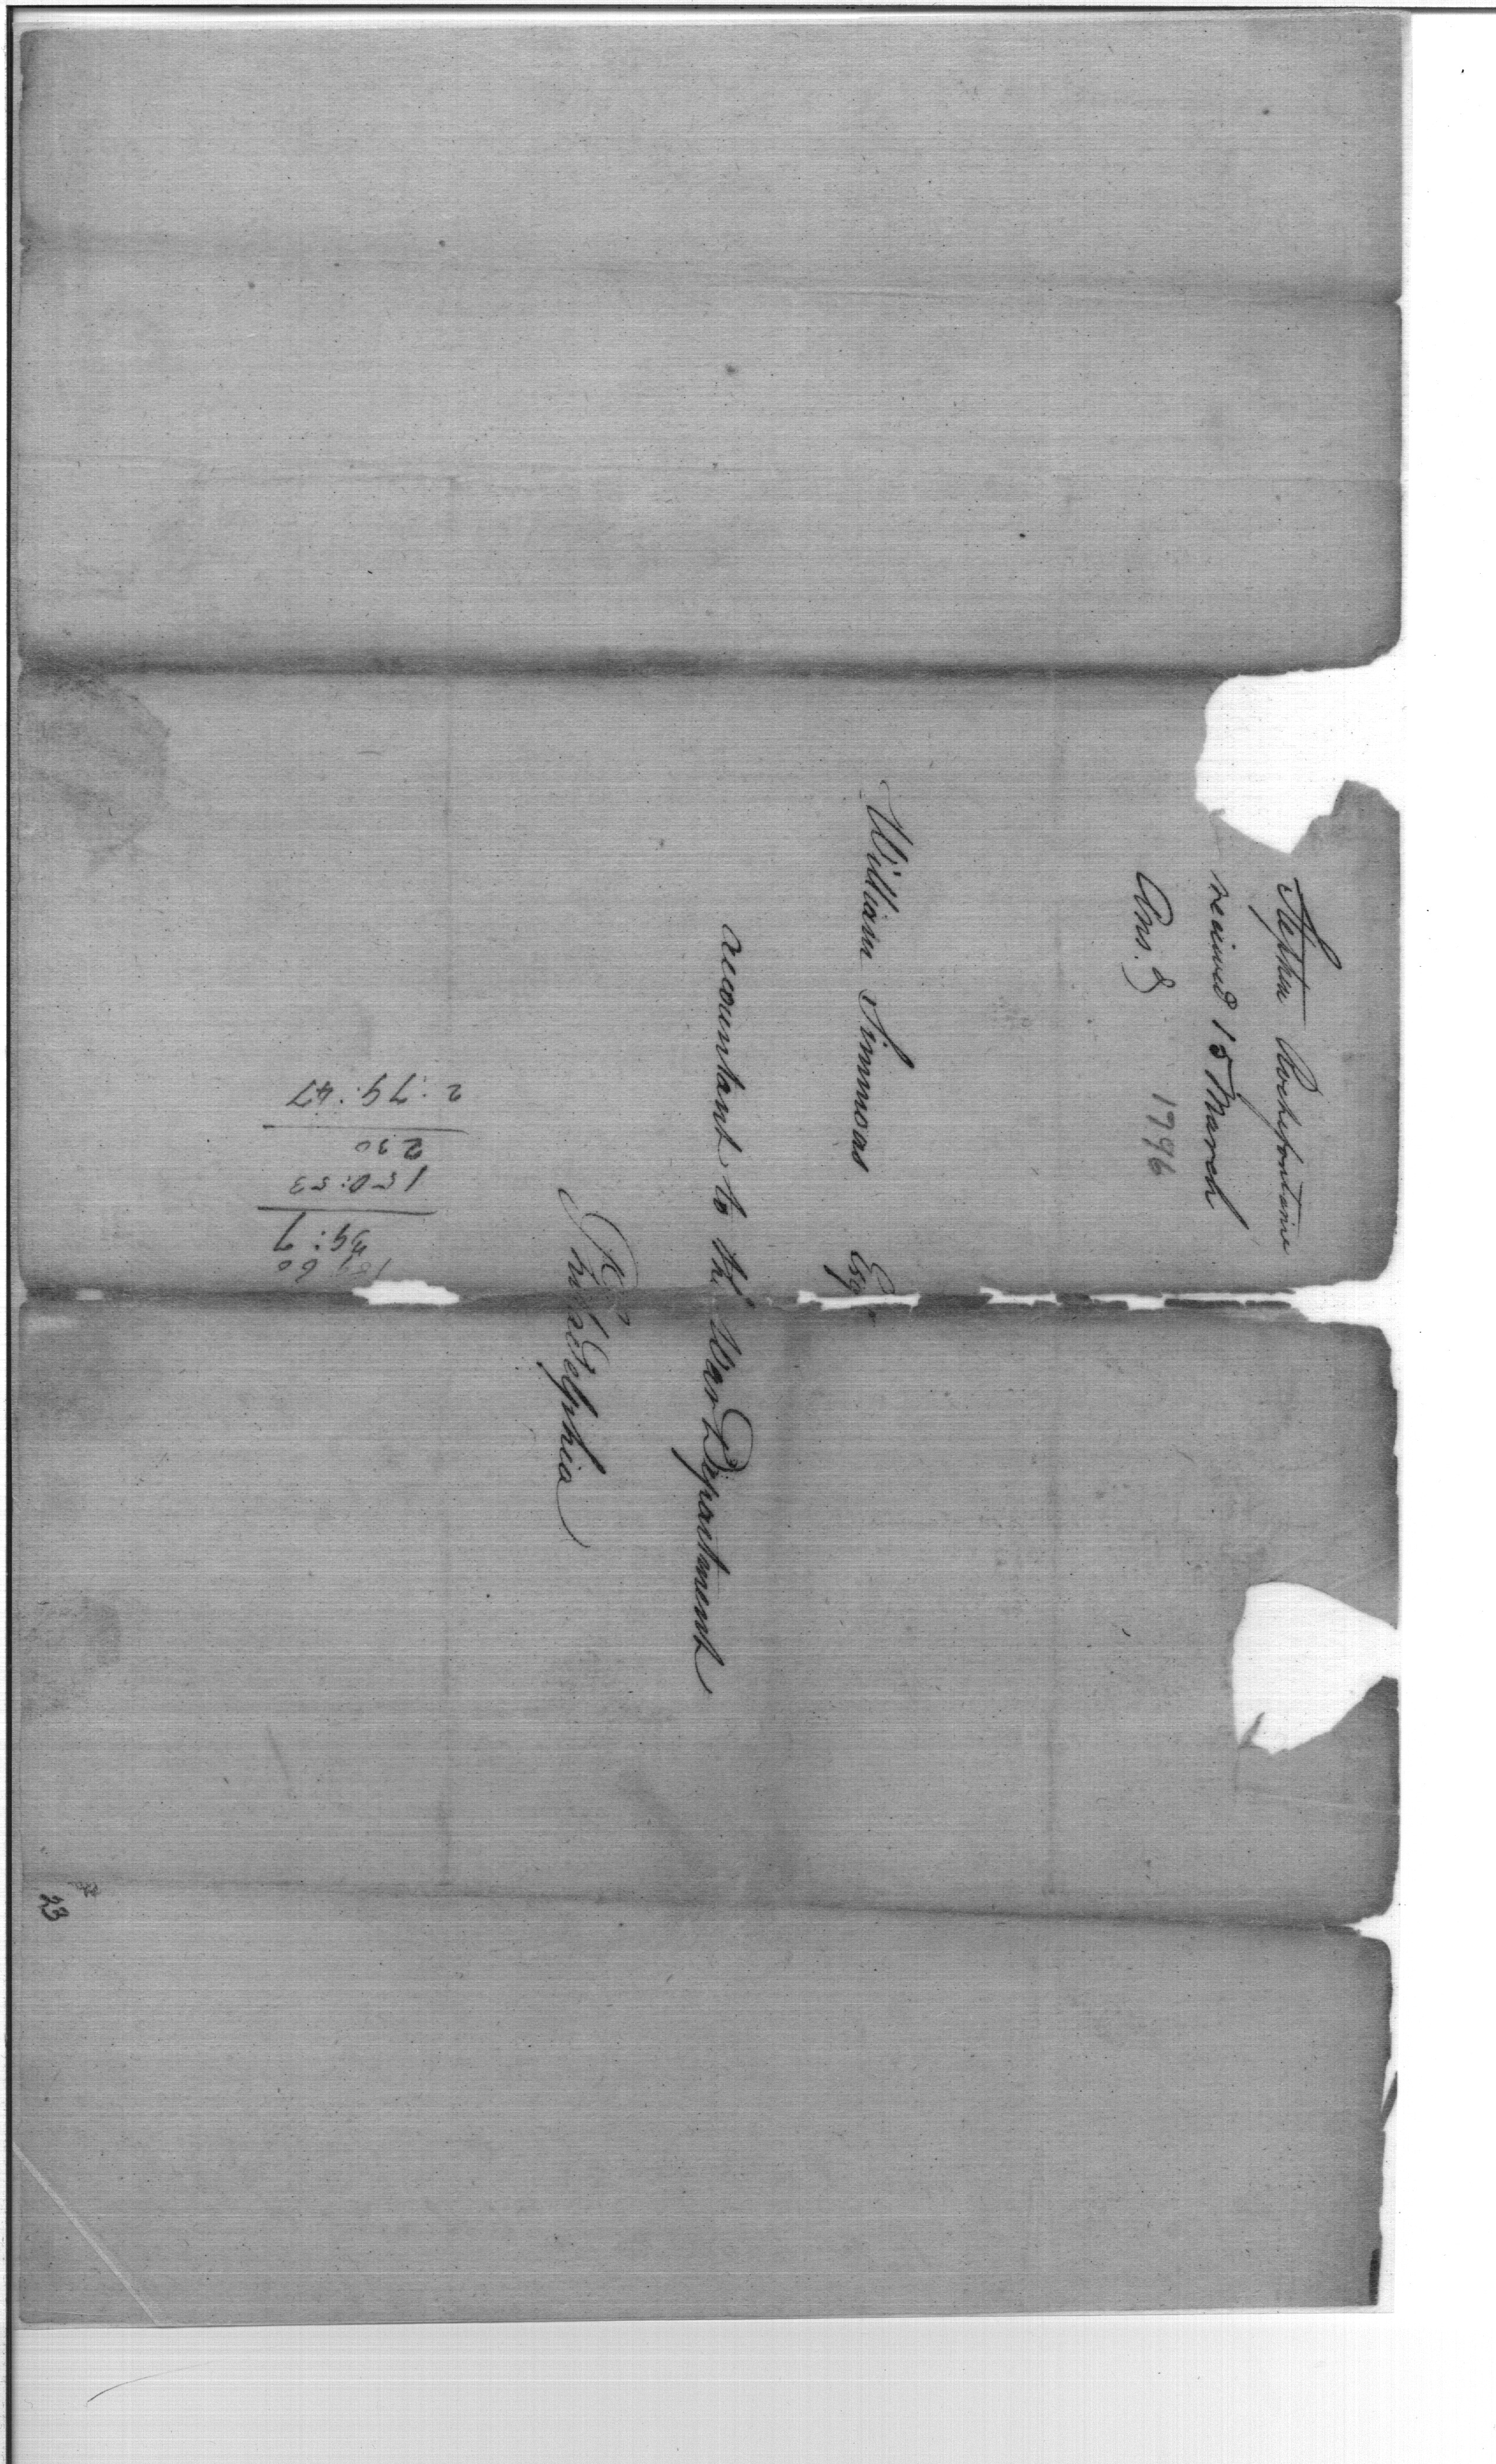 Stephen Rochefontaine
received 15 March
1796
Ans.d
William Simmons Esqr
accountant to the War Department
Philadelphia
189 60
39:7
150:53
230
2.79:47
23